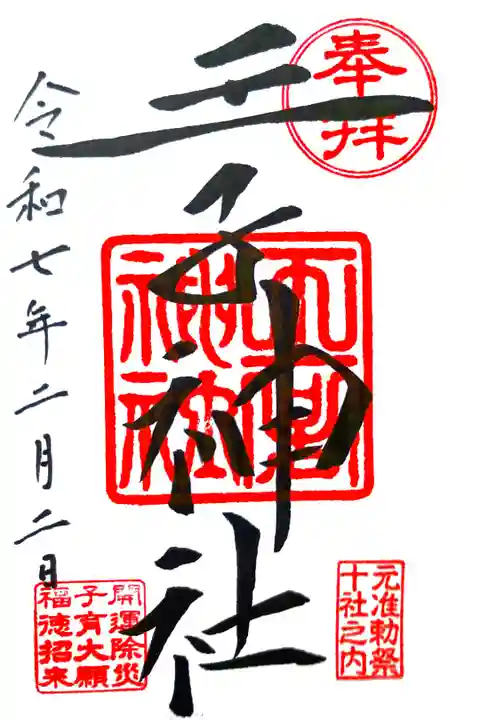 奉拝
王子神社
元准勅祭
十社之内
開運除災
子育大願
福徳招来
令和七年二月二日